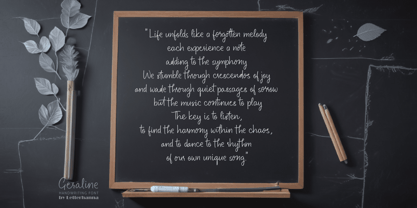 "Life unfolds like a forgotten melody
each experience a note
adding to the symphony
We stumble through crescendos of joy
and wade through quiet passages of sorrow
but the music continues to play
The key is to listen,
to find the harmony within the chaos,
and to dance to the rhythm
of our own unique song."
Geraline
HANDWRITING FONT